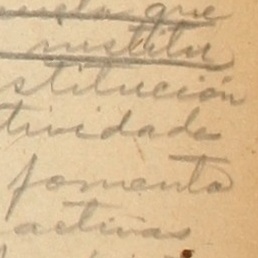 que
institu
stitución
tividade
fomenta
activas